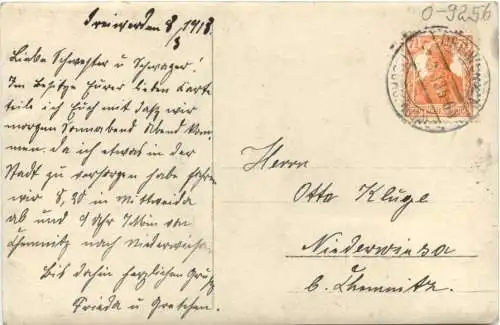 O-9256
8/3 1918.
Liebe Schwester u Schwager!
Im Besitze Eurer lieben Karte
teile ich Euch mit daß wir
morgen Sonnabend Abend kom-
men, da ich etwas in der
Stadt zu besorgen habe fahren
wir 8,30 in Mittweida
ab und 9 Uhr von
Chemnitz nach Niederwiesa.
Bis dahin herzlichen Gruß
Frieda u Gretchen.
Herrn
Otto Kluge
Niederwiesa
b. Chemnitz.